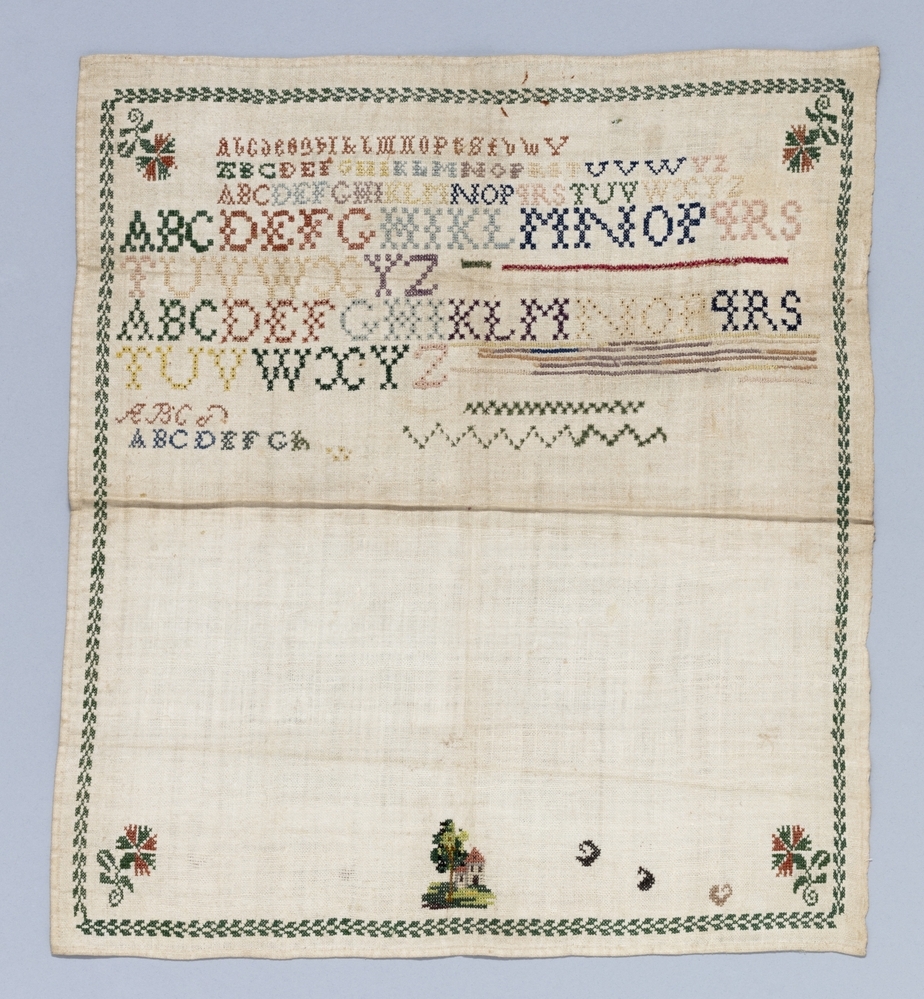 AbCdeøghIklmnOPRSfvwY
ABCDEFGHIKLMNOPRSTUVWYZ
ABCDEFGHIKLMNOPqRSTUVWXYZ
ABCDEFGHIKLMNOPqRS
TUVWXYZ
ABCDEFGHIKLMNOPqRS
TUVWXYZ
ABCD
ABCDEFGh